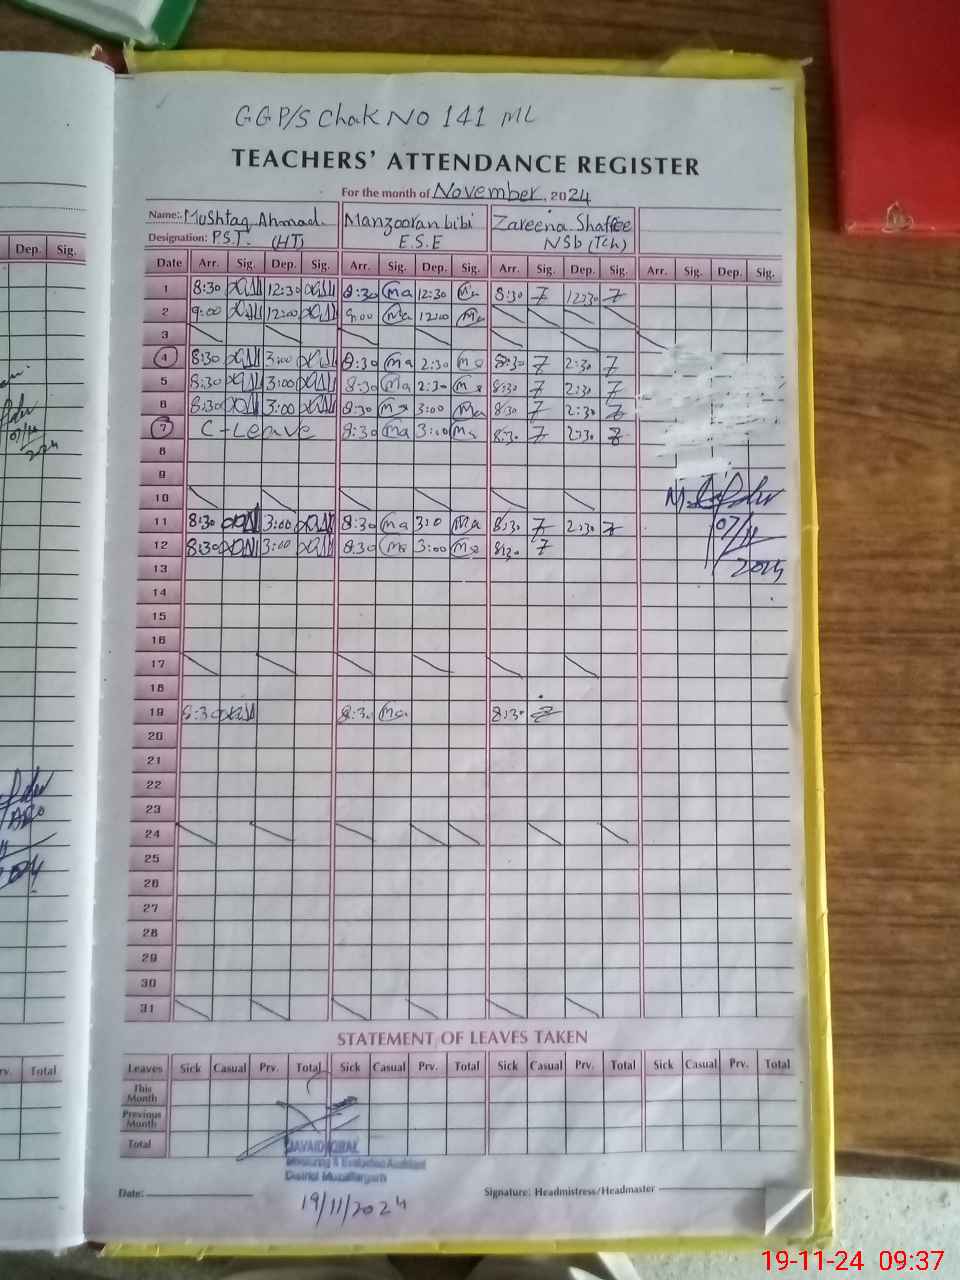 GGP/S Chak No 141 ML
TEACHERS' ATTENDANCE REGISTER
For the month of November, 2024
Name: Mushtaq Ahmad Manzooran bibi Zareena Shaffee
Designation: P.S.T. (HT) E.S.E NSb (Tch)
Dep. Sig. Date Arr. Sig. Dep. Sig. Arr. Sig. Dep. Sig. Arr. Sig. Dep. Sig. Arr. Sig. Dep. Sig.
1 8:30 12:30 8:30 Ma 12:30 Ma 8:30 Z 12:30 Z
2 9:00 12:00 9:00 Ma 12:00 Ma
3
4 8:30 3:00 8:30 Ma 2:30 Ma 8:30 Z 2:30 Z
5 8:30 3:00 8:30 Ma 2:30 Ma 8:30 Z 2:30 Z
6 8:30 3:00 8:30 Ma 3:00 Ma 8:30 Z 2:30 Z
7 C-Leave 8:30 Ma 3:00 Ma 8:30 Z 2:30 Z
8
9
10
11 8:30 3:00 8:30 Ma 3:0 Ma 8:30 Z 2:30 Z
07/11
12 8:30 3:00 8:30 Ma 3:00 Ma 8:30 Z
2024
13
14
15
16
17
18
19 8:30 8:30 Ma 8:30 Z
20
21
22
23
24
25
26
27
28
29
30
31
STATEMENT OF LEAVES TAKEN
Prv. Total Leaves Sick Casual Prv. Total Sick Casual Prv. Total Sick Casual Prv. Total Sick Casual Prv. Total
This Month
Previous Month
Total
JAVAID IQBAL
Monitoring & Evaluation Assistant
District Muzaffargarh
Date: Signature: Headmistress/Headmaster
19/11/2024
19-11-24 09:37